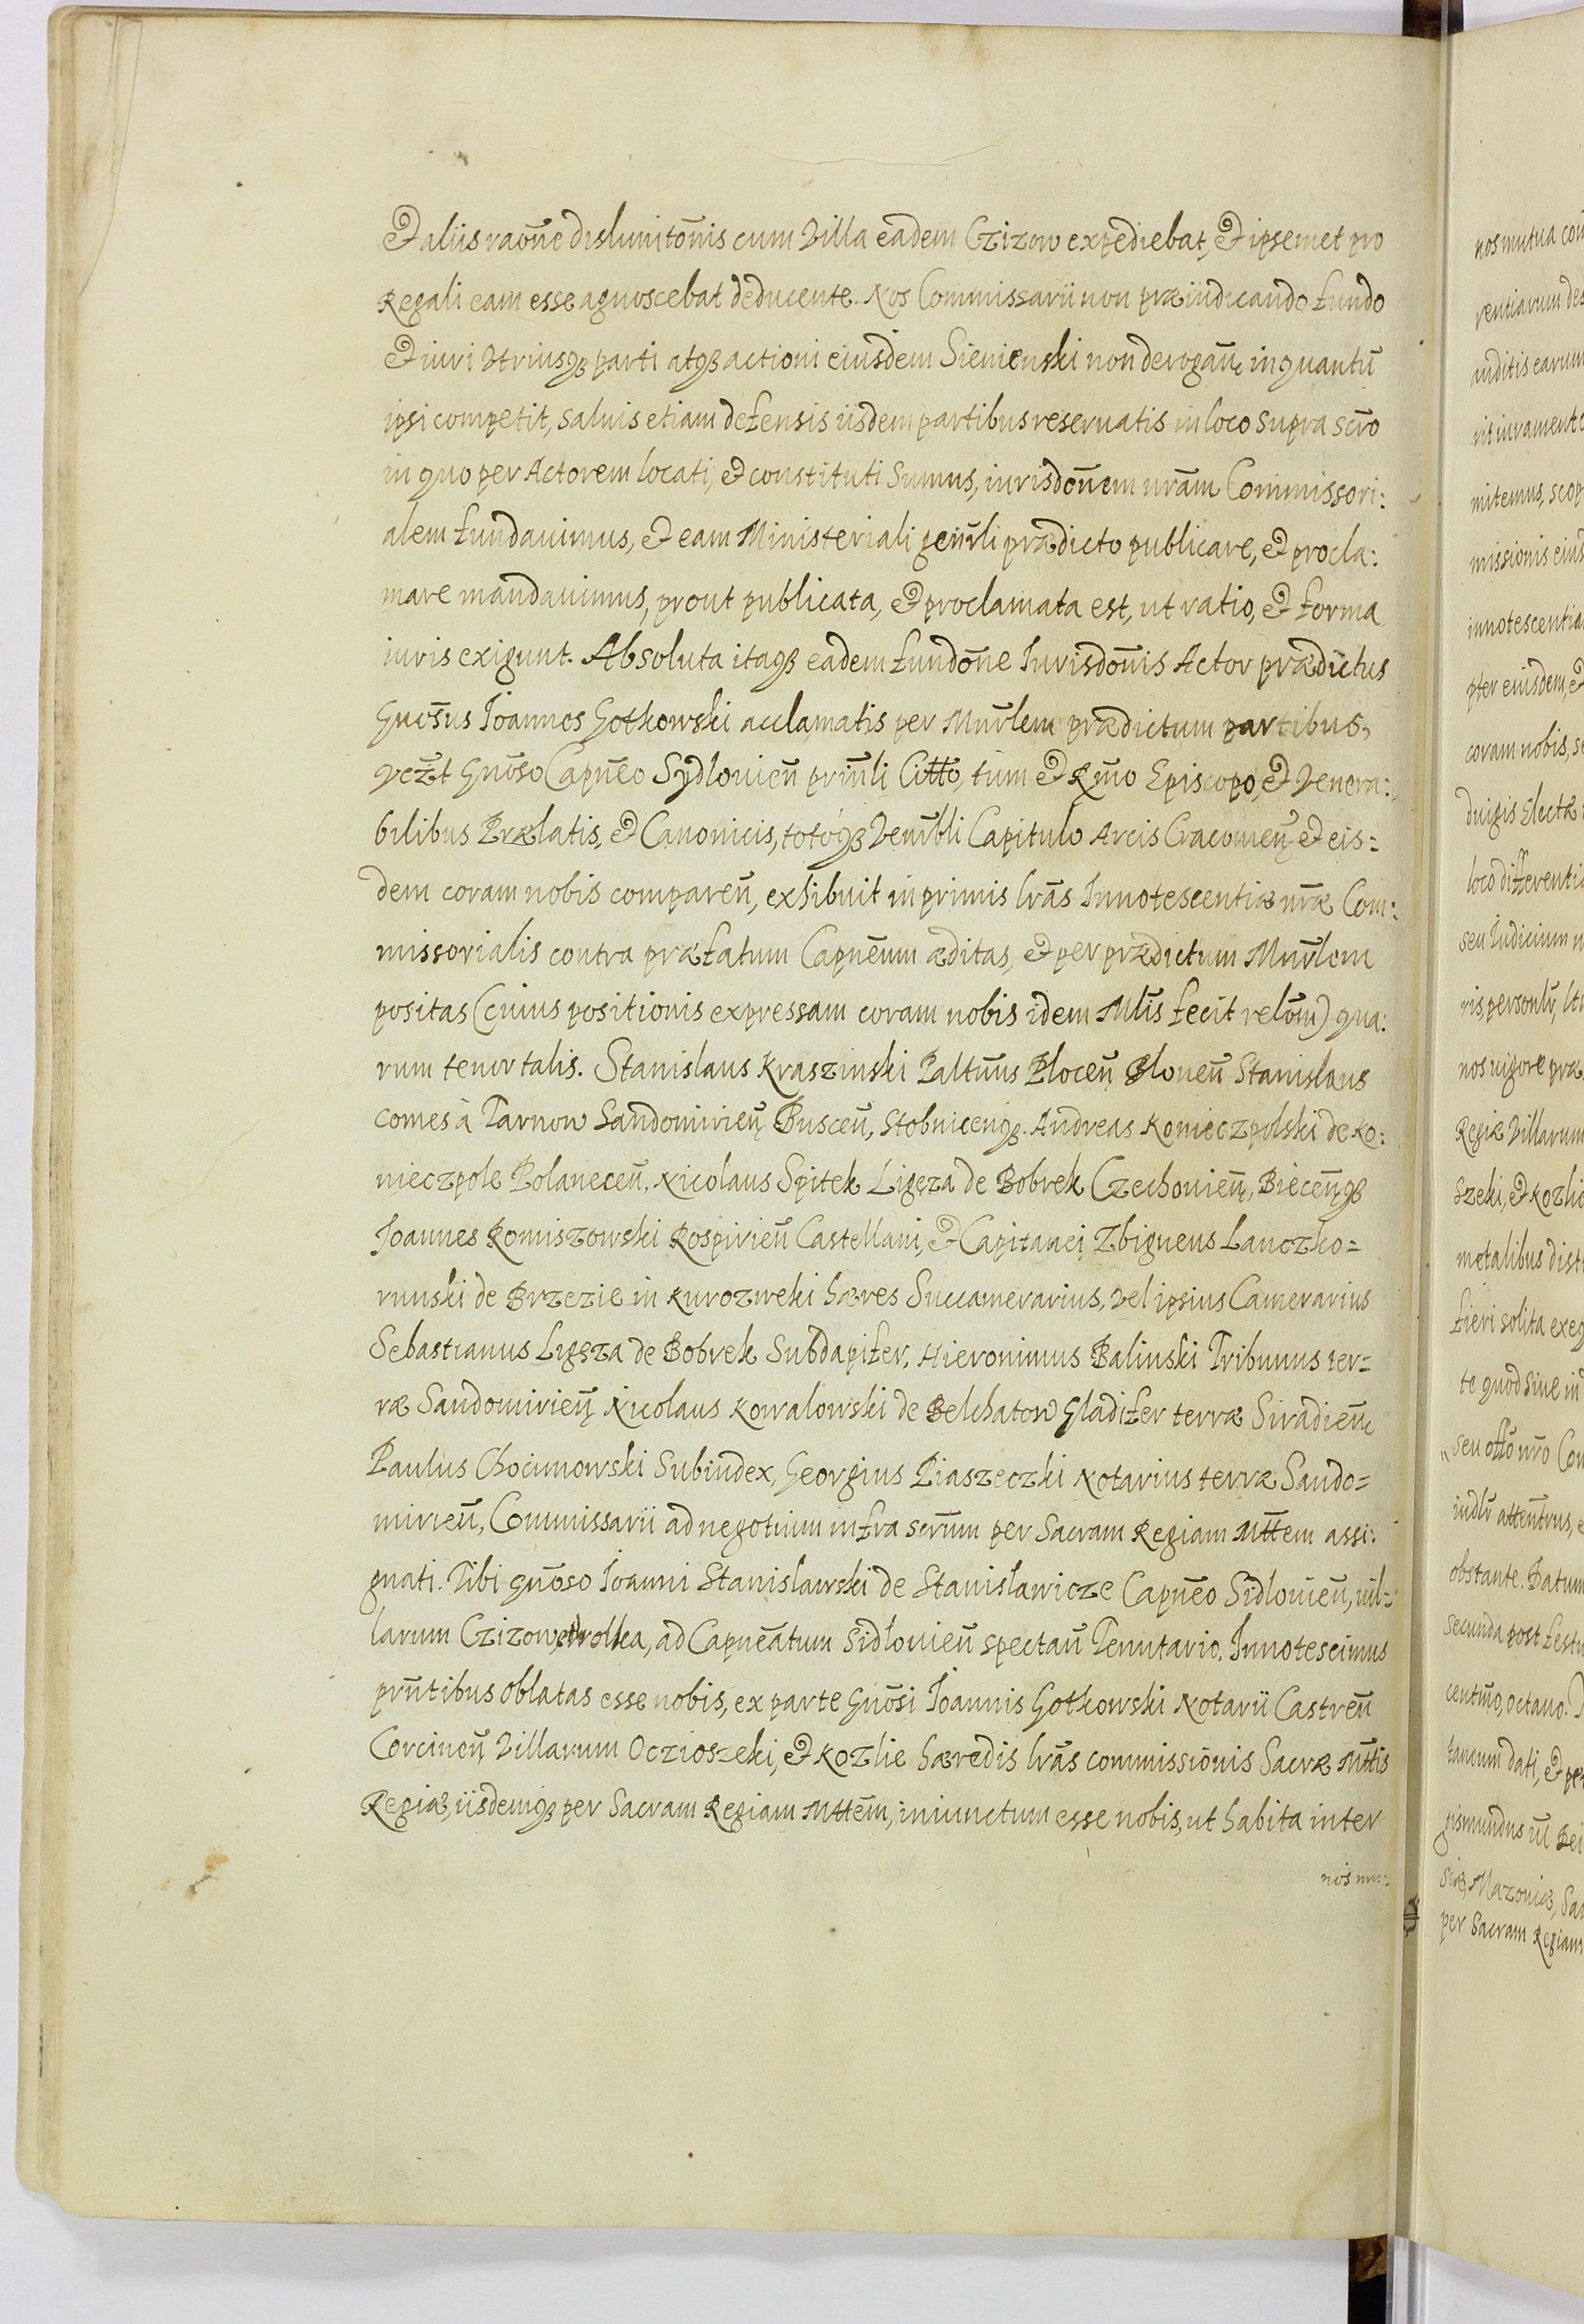 Et aliis raōne dislimitōnis cum Villa eadem Czizow expediebat, et ipsemet pro
Regali eam esse agnoscebat deducente. Nos Commissarii non præiudicando fundo
et iuri Vtriusqȝ parti atqȝ actioni eiusdem Sienienski non derogan̄ inquantū
ipsi competit, saluis etiam defensis iisdem partibus reseruatis in loco supra scr̄o
in quo per Actorem locati, et constituti Sumus, iurisdōnem nr̄am Commissori:
alem fundauimus, et eam Ministeriali gen̄rli prædicto publicare, et procla:
mare mandauimus, prout publicata, et proclamata est, ut ratio, et forma
iuris exigunt. Absoluta itaqȝ eadem fundōne Iurisdōnis Actor prædictus
Gn̄osus Ioannes Gotkowski acclamatis per Mnr̄lem prædictum partibus,
Vcz̄t Gn̄oso Capn̄eo Sydlouien̄ prin̄li Citt̄o, tum et Rm̄o Episcopo, et Venera:
bilibus Prælatis, et Canonicis, totóqȝ Venr̄bli Capitulo Arcis Cracouien̄ et eis=
dem coram nobis comparen̄, exhibuit in primis lr̄as Innotescentiæ nr̄æ Com:
missorialis contra præfatum Capn̄eum æditas, et per prædictum Mnr̄lem
positas (cuius positionis expressam coram nobis idem Ml̄is fecit relōm) qua:
rum tenor talis. Stanislaus Kraszinski Paltn̄us Plocen̄ Plonen̄ Stanislaus
comes à Tarnow Sandomirien̄ Buscen̄, Stobnicen̄qȝ. Andreas Konieczpolski de Ko:
nieczpole Polanecen̄, Nicolaus Spitek Ligęza de Bobrek Czechouien̄, Biecen̄qȝ
Joannes Komiszowski Rospirien̄ Castellani, et Capitanei Zbigneus Lanczko=
runski de Brzezie in Kurozweki hæres Succamerarius, vel ipsius Camerarius
Sebastianus Ligęza de Bobrek Subdapifer, Hieronimus Balinski Tribunus ter=
ræ Sandomirien̄ Nicolaus Kowalowski de Belchatow Gladifer terræ Siradien̄
Paulus Chocimowski Subiudex, Georgius Piaszeczki Notarius terræ Sando=
mirien̄, Commissarii ad negotium infra scrn̄m per Sacram Regiam Mtt̄em assi:
gnati. Tibi gn̄oso Ioanni Stanislawski de Stanisławicze Capn̄eo Sidlouien̄, uil=
larum Czizow, et Wolka, ad Capn̄eatum Sidłouien̄ spectan̄ Tenutario. Innotescimus
prn̄tibus oblatas esse nobis, ex parte Gn̄osi Ioannis Gotkowski Notarii Castren̄
Corcinen̄ Villarum Oczioszeki, et Kozlie hæredis lr̄as commissionis Sacræ Mtt̄is
Regiæ, iisdemqȝ per Sacram Regiam Mttēm, iniunctum esse nobis, ut habita inter
nos mu:
nos mutua con
rentiarum des
auditis earum
rit iuramento
mitemus, scop
missionis eius
innotescentia
pter eiusdem, et
coram nobis, s
duigis Electæ
loco differentia
seu Iudicium n
ris, personlr̄,
nos uigore præ
Regiæ Villarum
Szeki, et Kozlie
metalibus dist
fieri solita exeq
te quod siue in
seu offō nr̄o Com
iudlr̄ attentrus, e
obstante. Datum
Secunda post festu
centmo, octauo.
taneum dati, et per
gismundus III Dei
siæ, Mazouiæ, Sa
per Sacram Regiam